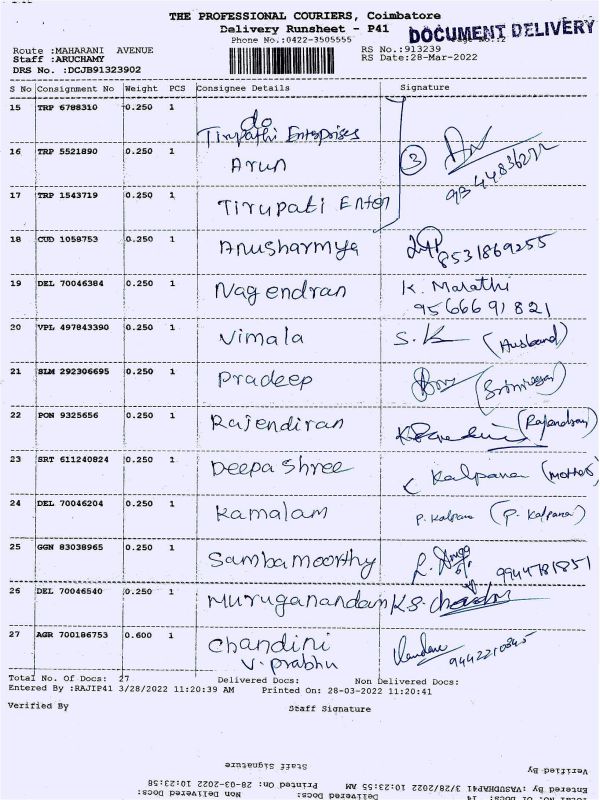 THE PROFESSIONAL COURIERS, Coimbatore
Delivery Runsheet - P41
DOCUMENT DELIVERY
Phone No.:0422-3505555
Route :MAHARANI AVENUE
RS No.:913239
Staff :ARUCHAMY
RS Date:28-Mar-2022
DRS No. :DCJB91323902
S No Consignment No Weight PCS Consignee Details Signature
15 TRP 6788310 0.250 1 do
Tirupathi Enterprises
16 TRP 5521890 0.250 1 Arun 3
17 TRP 1543719 0.250 1 Tirupati Enter
18 CUD 1058753 0.250 1 Anusharmya 8531869255
19 DEL 70046384 0.250 1 Nagendran K. Marathi
9566691821
20 VPL 497843390 0.250 1 Vimala S.K (Husband)
21 SLM 292306695 0.250 1 Pradeep (Srinivasan)
22 PON 9325656 0.250 1 Rajendiran (Rajendran)
23 SRT 611240824 0.250 1 Deepa Shree Kalpana (Mother)
24 DEL 70046204 0.250 1 Kamalam P. Kalpana (P. Kalpana)
25 GGN 83038965 0.250 1 Sambamoorthy 9944781851
26 DEL 70046540 0.250 1 Muruganandam K.S.
27 AGR 700186753 0.600 1 Chandini
V. Prabhu
Total No. Of Docs: 27 Delivered Docs: Non Delivered Docs:
Entered By :RAJIP41 3/28/2022 11:20:39 AM Printed On: 28-03-2022 11:20:41
Verified By Staff Signature
Staff Signature
Verified By
Entered By :VASUDHAP41 3/28/2022 10:23:55 AM Printed On: 28-03-2022 10:23:58
Total No. Of Docs: 14 Delivered Docs: Non Delivered Docs: